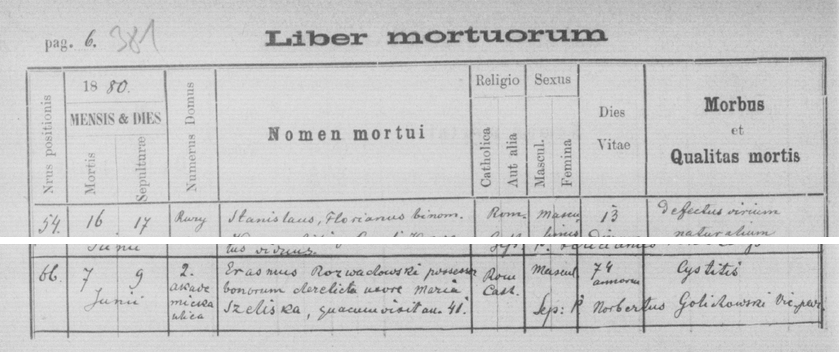 pag. 6. 381 Liber mortuorum
Nrus positionis
1880.
MENSIS & DIES
Mortis
Sepulturæ
Numerus Domus
Nomen mortui
Religio
Catholica
Aut alia
Sexus
Mascul.
Femina
Dies
Vitae
Morbus
et
Qualitas mortis
54. 16 17 Rury Stanislaus, Florianus binom. Rom. Mascu 13 defectus virium
naturalium
Junii tus viduus.
66. 7 9 2. Erasmus Rozwadowski possessor Rom Mascul 74 Cystitis
Junii akade bonorum derelicta uxore Maria Cath. annorum
micka Szeliska, quacum vixit an. 41. Sep: P. Norbertus Golichowski Vic. par.
ulica